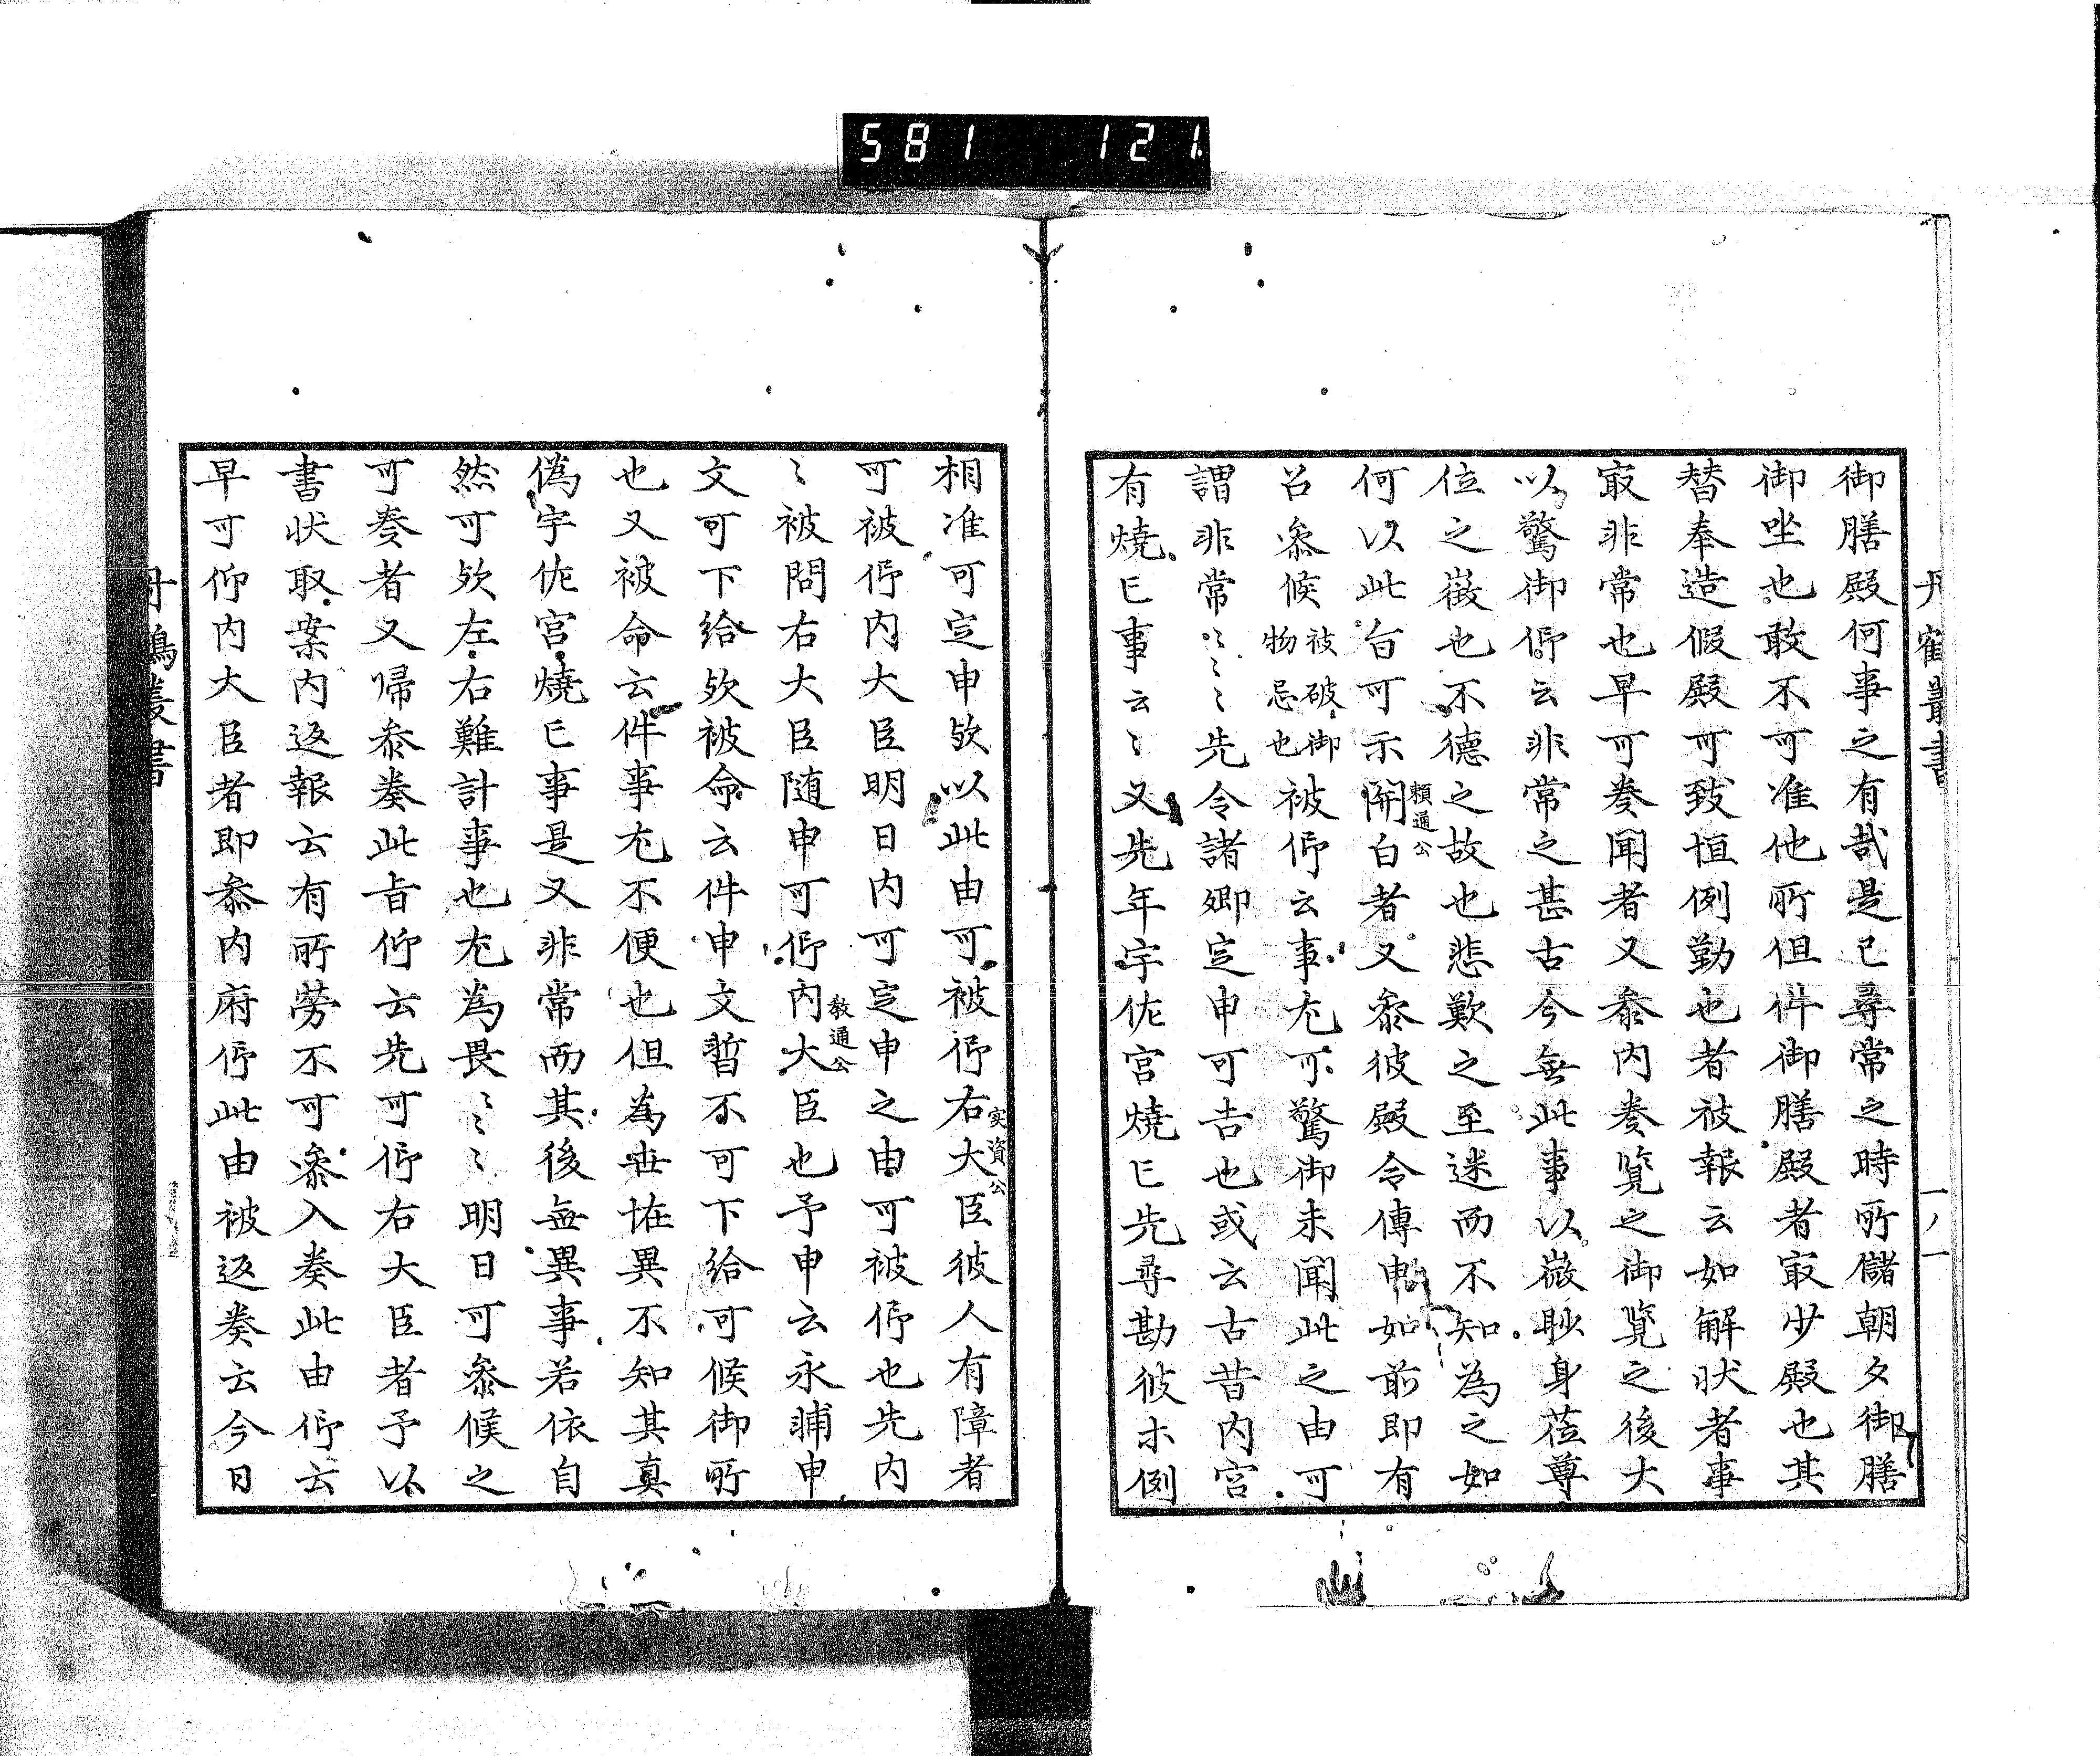 581 121
丹鶴叢書
御膳殿何事之有哉是已尋常之時所儲朝夕御膳
御坐也敢不可准他所但件御膳殿者㝡少殿也其
替奉造假殿可致恒例勤也者被報云如解状者事
㝡非常也早可奏聞者又參内奏覧之御覧之後大
以驚御仰云非常之甚古今無此事以微眇身莅尊
位之徴也不德之故也悲歎之至迷而不知為之如
何以此旨可示関白者又參彼殿令傳申如前即有
頼通公
召參候被破御物忌也被仰云事尤可驚御未聞此之由可
謂非常〻〻〻先令諸卿定申可吉也或云古昔内宮
有燒亡事云〻又先年宇佐宮燒亡先尋勘彼木例
相准可定申欤以此由可被仰右大臣彼人有障者
実資公
可被仰内大臣明日内可定申之由可被仰也先内
〻被問右大臣随申可仰内大臣也予申云永輔申
教通公
文可下給欤被命云件申文暫不可下給可候御所
也又被命云件事尤不便也但為世恠異不知其真
偽宇佐宮燒亡事是又非常而其後無異事若依自
然可欤左右難計事也尤為畏〻〻〻明日可參候之
可奏者又帰參奏此旨仰云先可仰右大臣者予以
書状取案内返報云有所勞不可參入奏此由仰云
早可仰内大臣者即參内府仰此由被返奏云今日
丹鶴叢書